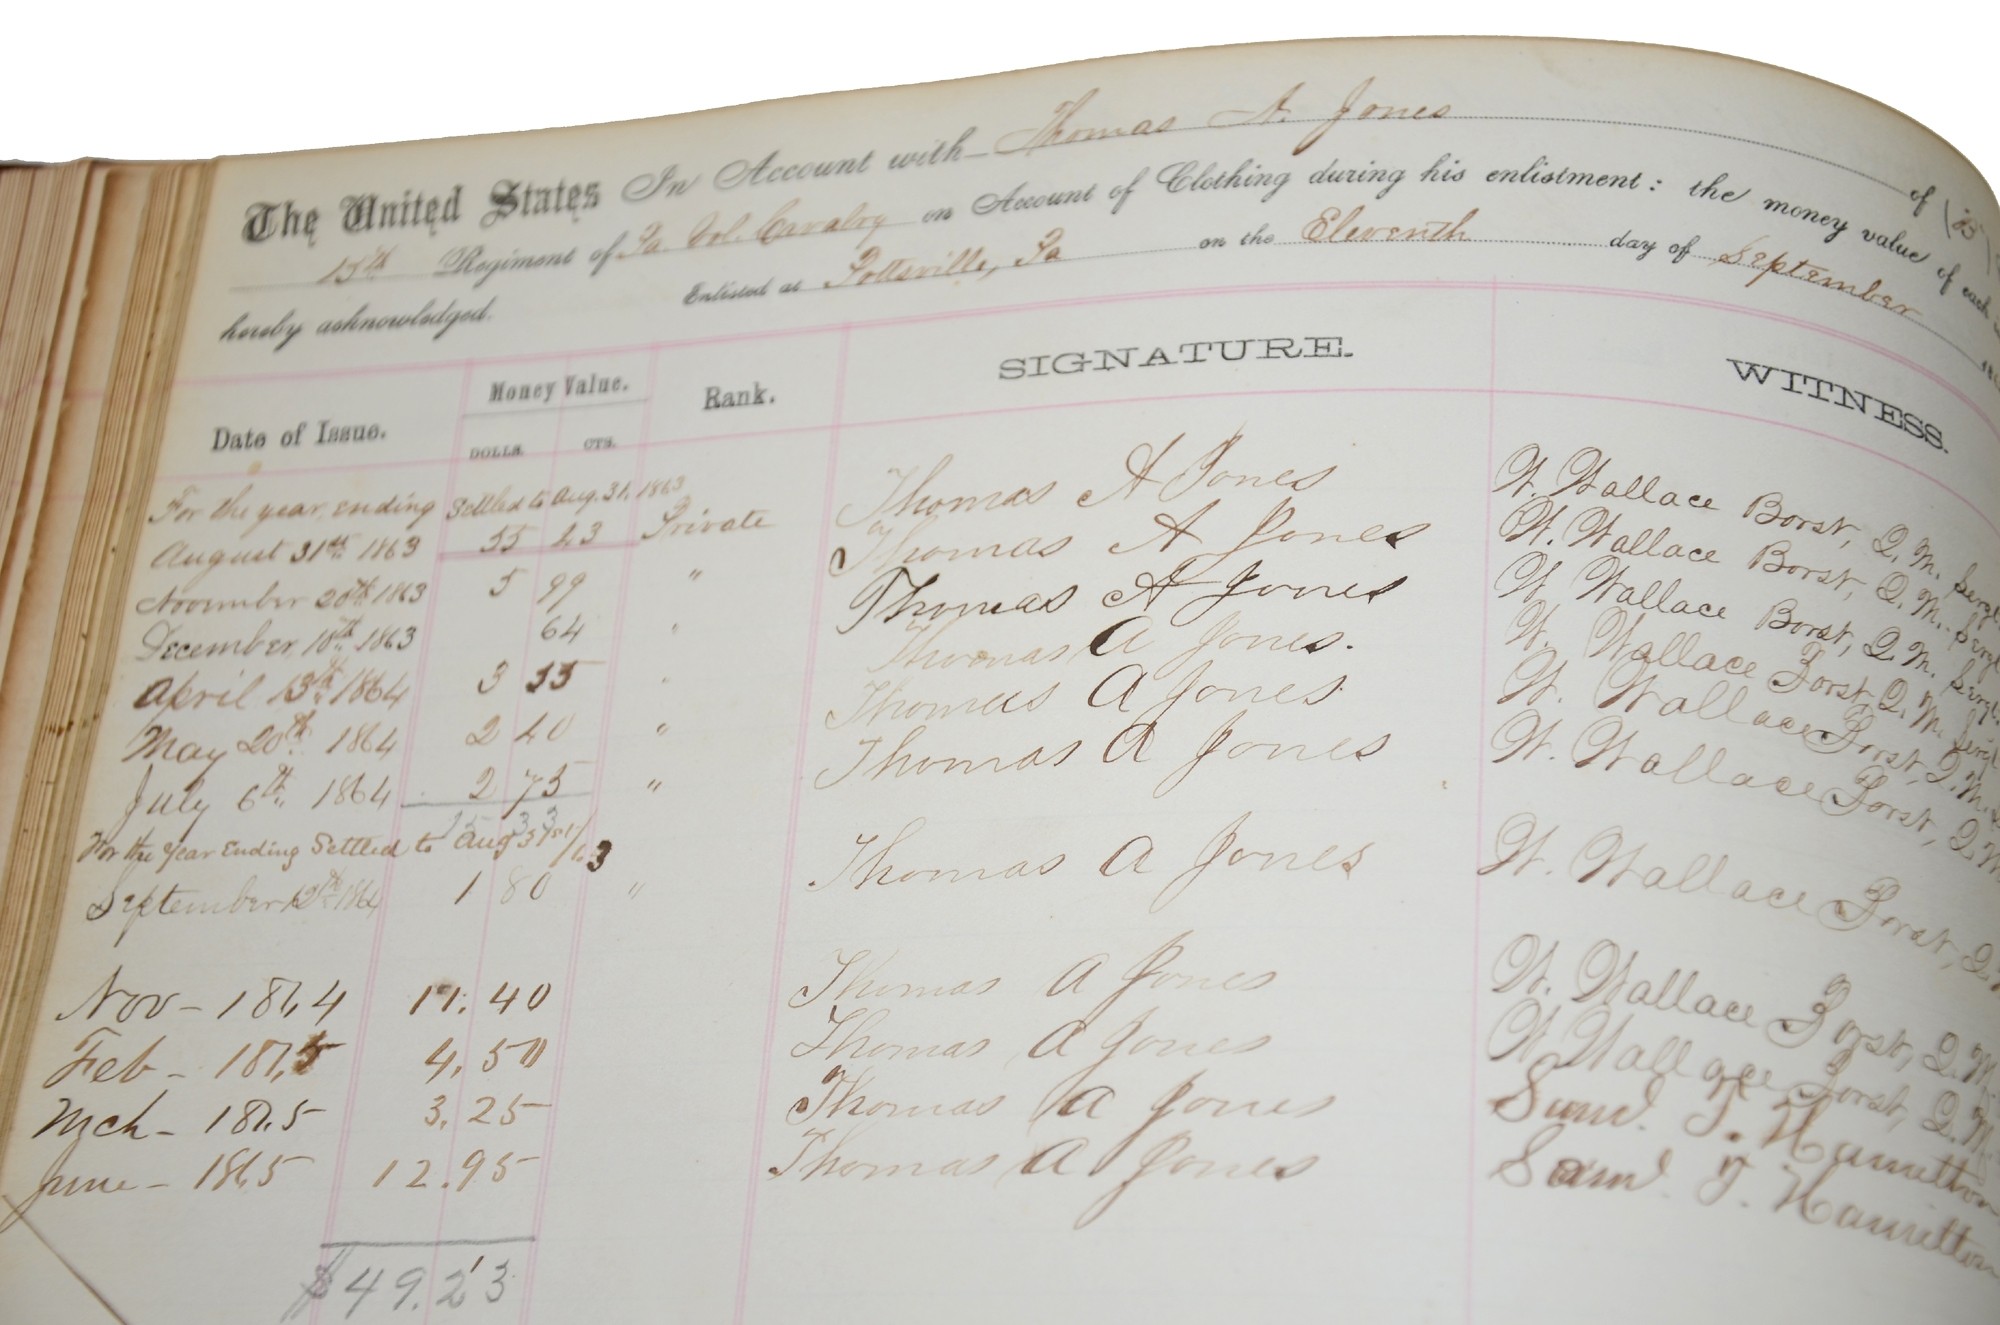 The United States In Account with Thomas A. Jones of
15th Regiment of Pa Vol. Cavalry on Account of Clothing during his enlistment: the money value of each
hereby acknowledged. Enlisted at Pottsville, Pa on the Eleventh day of September
Date of Issue. Money Value. Rank. SIGNATURE. WITNESS.
DOLLS. CTS.
For the year ending Settled to Aug. 31, 1863
August 31st 1863 55 23 Private Thomas A Jones W. Wallace Borst, Q. M. Sergt
November 20th 1863 5 99 " Thomas A Jones W. Wallace Borst, Q. M. Sergt
December 18th 1863 64 " Thomas A Jones W. Wallace Borst, Q. M. Sergt
April 13th 1864 3 55 " Thomas A Jones. W. Wallace Borst, Q. M. Sergt
May 20th 1864 2 40 " Thomas A Jones W. Wallace Borst, Q. M.
July 6th 1864 2 75 " Thomas A Jones W. Wallace Borst, Q. M
15 33
For the Year Ending Settled to Aug 31st/63
September 12th 1864 1 80 " Thomas A Jones W. Wallace Borst, Q.
Nov - 1864 17.40 Thomas A Jones W. Wallace Borst, Q. M.
Feb - 1865 4.50 Thomas A Jones W Wallace Borst, Q. M.
Mch - 1865 3.25 Thomas A Jones Saml. T. Hamilton
June - 1865 12.95 Thomas A Jones Saml. T. Hamilton
$49.23